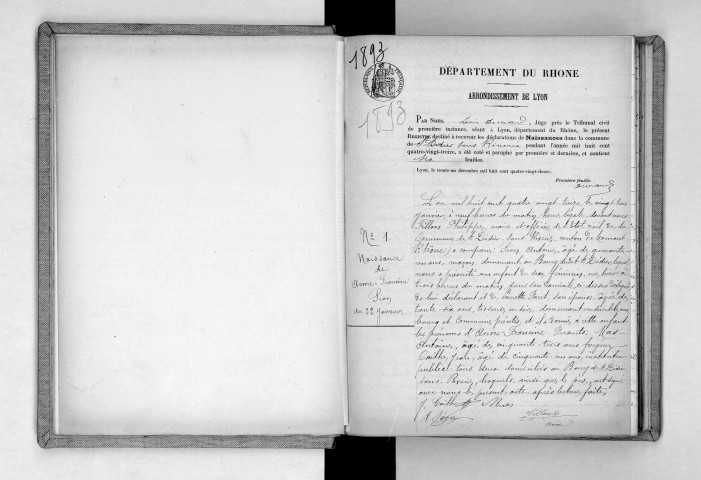 1893
1893
DÉPARTEMENT DU RHONE
ARRONDISSEMENT DE LYON
PAR NOUS, Juge près le Tribunal civil
de première instance, séant à Lyon, département du Rhône, le présent
REGISTRE destiné à recevoir les déclarations de Naissances dans la commune
de St Didier sous Riverie pendant l'année mil huit cent
quatre-vingt-treize, a été coté et paraphé par première et dernière, et contient
feuilles.
Lyon, le trente-un décembre mil huit cent quatre-vingt-douze.
Première feuille.
L'an mil huit cent quatre vingt treize, le vingt trois
janvier, à neuf heures du matin, devant nous
Philippe, maire et officier de l'Etat civil de la
Commune de St Didier sous Riverie, canton de Mornant
(Rhône) a comparu: Antoine, âgé de quarante
un ans, maçon, demeurant au Bourg de St Didier, lequel
nous a présenté un enfant de sexe féminin, né hier à
trois heures du matin, dans son domicile, ci-dessus désigné
de lui déclarant et de son épouse, âgée de
trente six ans, demeurant ensemble au
bourg et Commune précités, et a donné à cette enfant
les prénoms d'Anne-Françoise. Présents: Mas
Antoine, âgé de cinquante trois ans, forgeur,
Jean, âgé de cinquante un ans, instituteur
public, tous deux domiciliés au Bourg de St Didier
sous Riverie, lesquels, ainsi que le père, ont signé
avec nous le présent acte après lecture faite.
No 1.
Naissance
de
Anne-Françoise
du 22 janvier